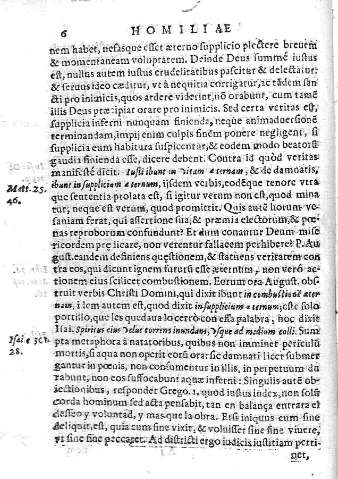 6 HOMILIAE
nem habet, nefasque esset æterno supplicio plectere breuem
& momentaneam voluptatem. Deinde Deus summè iustus
est, nullus autem iustus crudelitatibus pascitur & delectatur:
& seruus ideo cæditur, vt à nequitia corrigatur, ac tādem sancti
pro inimicis, quos ardere viderint, nō orabunt, cum tamē
illis Deus præcipiat orare pro inimicis. Sed certa veritas est,
supplicia inferni nunquam finienda, neque animaduersionē
terminandam, impij enim culpis sinem ponere negligent, si
supplicia eum habitura suspicentur, & eodem modo beatorū
gaudia finienda esse, dicere debent. Contra id quòd veritas
manifestè dicit. Iusti ibunt in vitam æternam, & de damnatis,
Matt. 25. ibunt in supplicium æternum, ijsdem verbis, eodēque tenore vtra
46. que sententia prolata est, si igitur verum non est, quod mina
tur, neque est verum, quod promittit; Quis autē horum ve-
saniam ferat, qui assertione sua, & præmia electorum, & pœ-
nas reproborum confundunt? Et dum conantur Deum mise
ricordem prędicare, non verentur fallacem perhibere? P. Au-
gust. eandem definiens quęstionem, & statuens veritatem con
tra eos, qui dicunt ignem futurū esse æternum, non verò ac-
tionem eius scilicet combustionem. Eorum ora August. obs-
truit verbis Christi Domini, qui dixit ibunt in combustionē æter
nam, idem autem est, quod dixit in supplicium æternum, este solo
portillo, que les quedaua lo cerrò con essa palabra, hoc dixit
Isai. Spiritus eius velut torrens inundans, vsque ad medium colli. Sum
Isaiæ 30.
28. pta metaphora à natatoribus, quibus non imminet periculū
mortis, si aqua non operit eorū ora: sic damnati licet submer
gantur in pœnis, non consumentur in illis, in perpetuum du
rabunt, non eos suffocabunt aquæ inferni: Singulis autē ob-
iectionibus, respondet Grego. 1. quod iustus index, non solū
corda hominum sed acta pensabit, tan en balança entrara el
desseo y voluntad, y mas que la obra. Eius iniquus cum sine
deliquit, est, quia cum sine vixit, & voluisset sine fine viuere,
vt sine sine peccaret. Ad districti ergo iudicis iustitiam perti-
net,